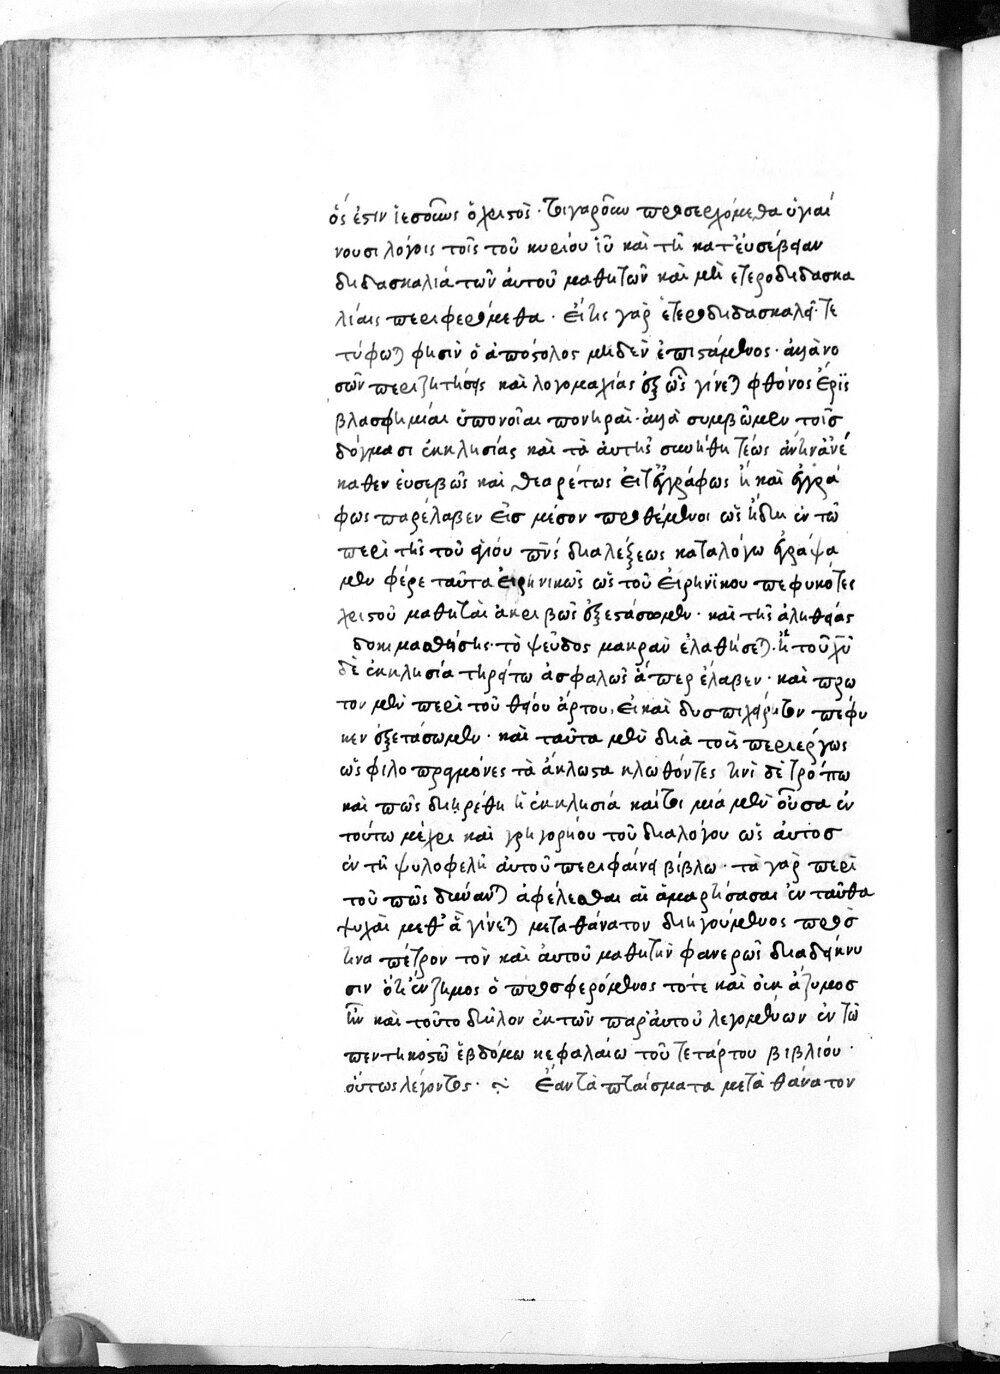 ὅς ἐστιν ἰησοῦς ὁ χριστός· τί γὰρ οὐ προσερχόμεθα ὑγιαί
νουσι λόγοις τοῖς τοῦ κυρίου ἰῦ καὶ τῆ κατ' ἐυσέβειαν
διδασκαλιά τῶν ἀυτοῦ μαθητῶν καὶ μὴ ἑτεροδιδασκα
λίαις περιφερόμεθα· εἴ τις γὰρ ἑτεροδιδασκαλεῖ· τε
τύφωται φησὶν ὁ ἀπόστολος μηδὲν ἐπιστάμενος· ἀλλὰ νο
σῶν περὶ ζητήσεις καὶ λογομαχίας ἐξ ὧν γίνεται φθόνος ἔρις
βλασφημίαι ὑπόνοιαι πονηραὶ· ἀλλὰ συμβῶμεν τοῖς
δόγμασι ἐκκλησίας καὶ τὰ ἀυτῆς συνήθη τέως
καθεν ἐυσεβῶς καὶ θεαρέτως εἴτ' ἐγγράφως ἢ καὶ ἀγρά
φως παρέλαβεν εἰσ μέσον προθέμενοι ὡς ἤδη ἐν τῶ
περὶ τῆς τοῦ ἁγίου πνς διαλέξεως καταλόγω ἐγράψα
μεν φέρε ταῦτα εἰρηνικῶς ὡς τοῦ εἰρηνϊκου πεφυκότες
χριστοῦ μαθηταὶ ἀκριβῶς ἐξετάσωμεν· καὶ τῆς ἀληθείας
δοκιμασθήσης· τὸ ψεῦδος μακρὰν ἐλαθήσεται· ἡ τοῦ χῦ
δὲ ἐκκλησία τηρείτω ἀσφαλῶς ἅπερ ἔλαβεν· καὶ πρω
τον μὲν περὶ τοῦ θείου ἄρτου, εἰ καὶ δυσπιχείρητον πεφυ
κεν ἐξετάσωμεν· καὶ ταῦτα μὲν διὰ τοὺς περιέργως
ὡς φιλοπραγμόνες τὰ ἄκλωστα κλωθόντες τινὶ δὲ τρόπω
καὶ πῶς διηρέθη ἡ ἐκκλησιά καίτοι μιά μὲν οὖσα ἐν
τούτω μέχρι καὶ γρηγορίου τοῦ διαλόγου ὡς ἀυτοσ
ἐν τῆ ψυλοφελῆ ἀυτοῦ περιφαίνει βίβλω· τὰ γὰρ περὶ
τοῦ πῶς δύνανται ὀφέλεσθαι αἱ ἁμαρτήσασαι ἐν ταῦθα
ψυχαὶ μεθ' ἃ γίνεται μετα θάνατον διηγούμενος πρὸς
τινα πέτρον τὸν καὶ ἀυτοῦ μαθητὴν φανερῶς διαδείκνυ
σιν ὅτι ἔνζημος ὁ προσφερόμενος τότε καὶ οὐκ ἄζυμοσ
ἦν καὶ τοῦτο δῆλον ἐκ τῶν παρ' ἀυτοῦ λεγομένων ἐν τῶ
πεντηκοστῶ ἑβδόμω κεφαλαίω τοῦ τετάρτου βιβλίου·
οὕτως λέγοντος· ~ Ἐὰν τὰ πταίσματα μετὰ θάνατον